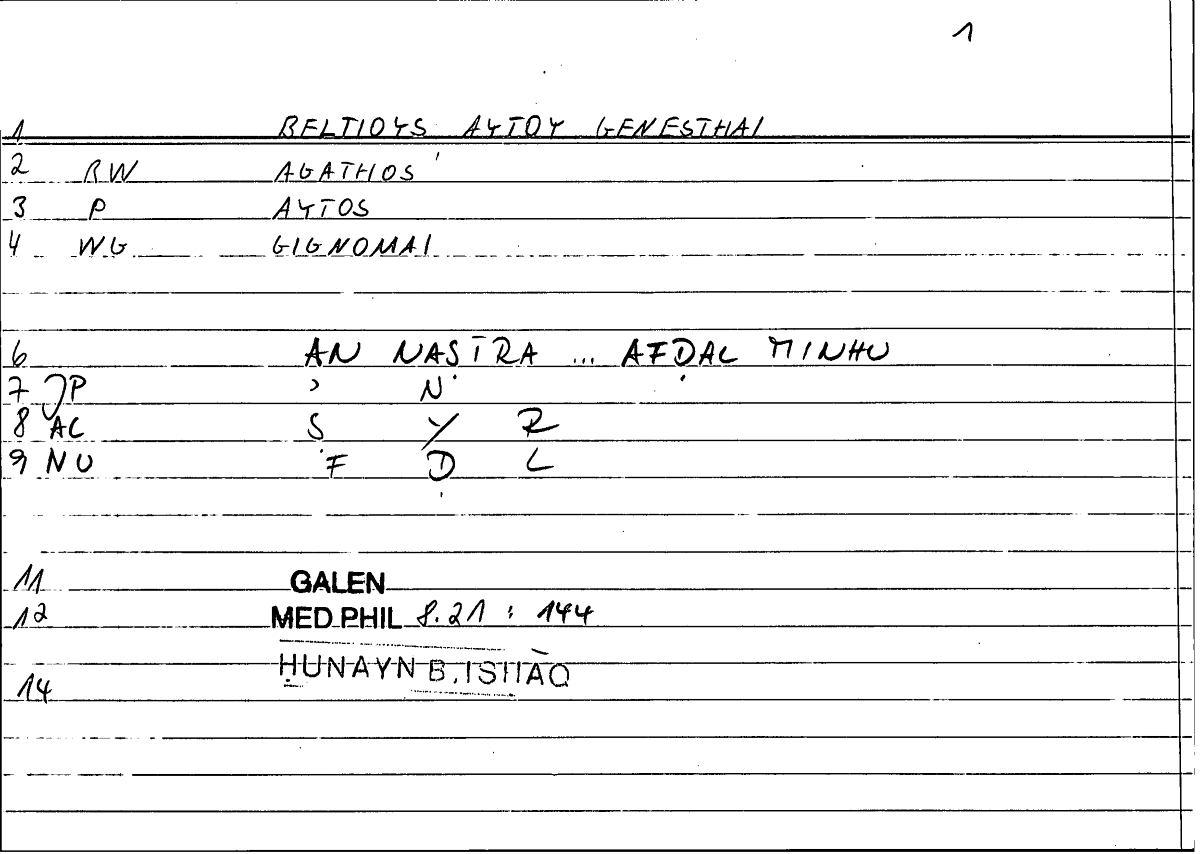 1
1 BELTIOYS AYTOY GENESTHAI
2 RW AGATHOS
3 P AYTOS
4 WG GIGNOMAI
6 AN NAṢĪRA ... AFḌAL MINHU
7 JP ʾ N
8 AC Ṣ Y R
9 NU F Ḍ L
11 GALEN
12 MED PHIL 8.21 : 144
ḤUNAYN B. ISḤĀQ
14